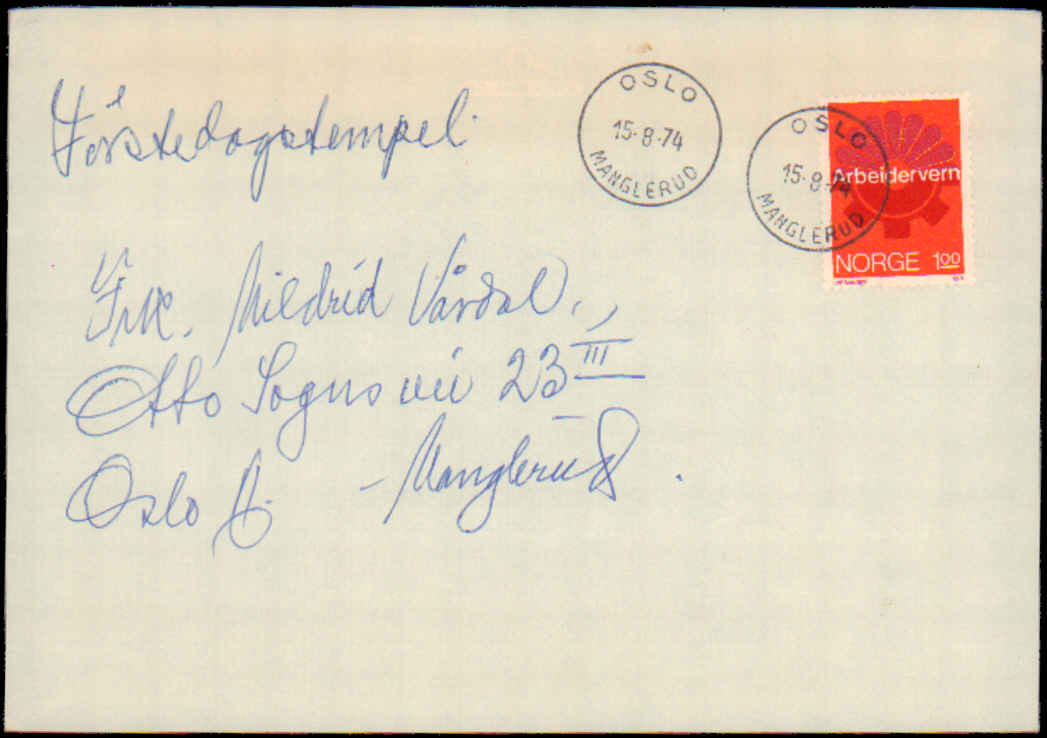 Førstedagstempel.
OSLO
15-8-74
MANGLERUD
OSLO
15-8-74
MANGLERUD
Arbeidervern
NORGE 100
Frk. Mildrid Vårdal.,
Otto Sogns vei 23 III
Oslo - Manglerud.